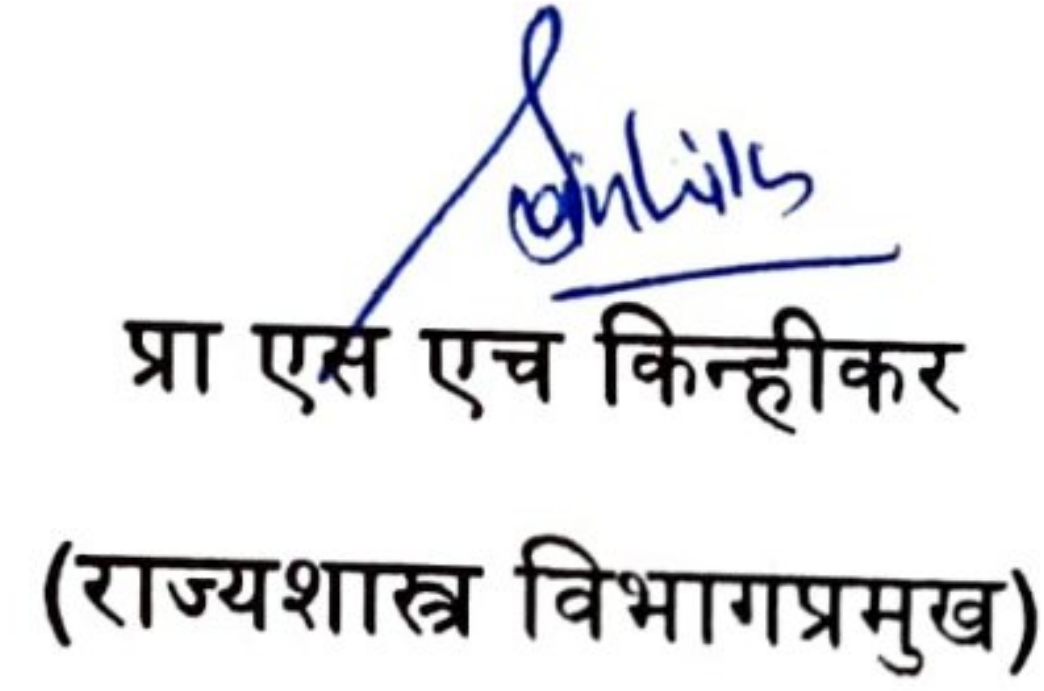 प्रा एस एच किन्हीकर
(राज्यशास्त्र विभागप्रमुख)